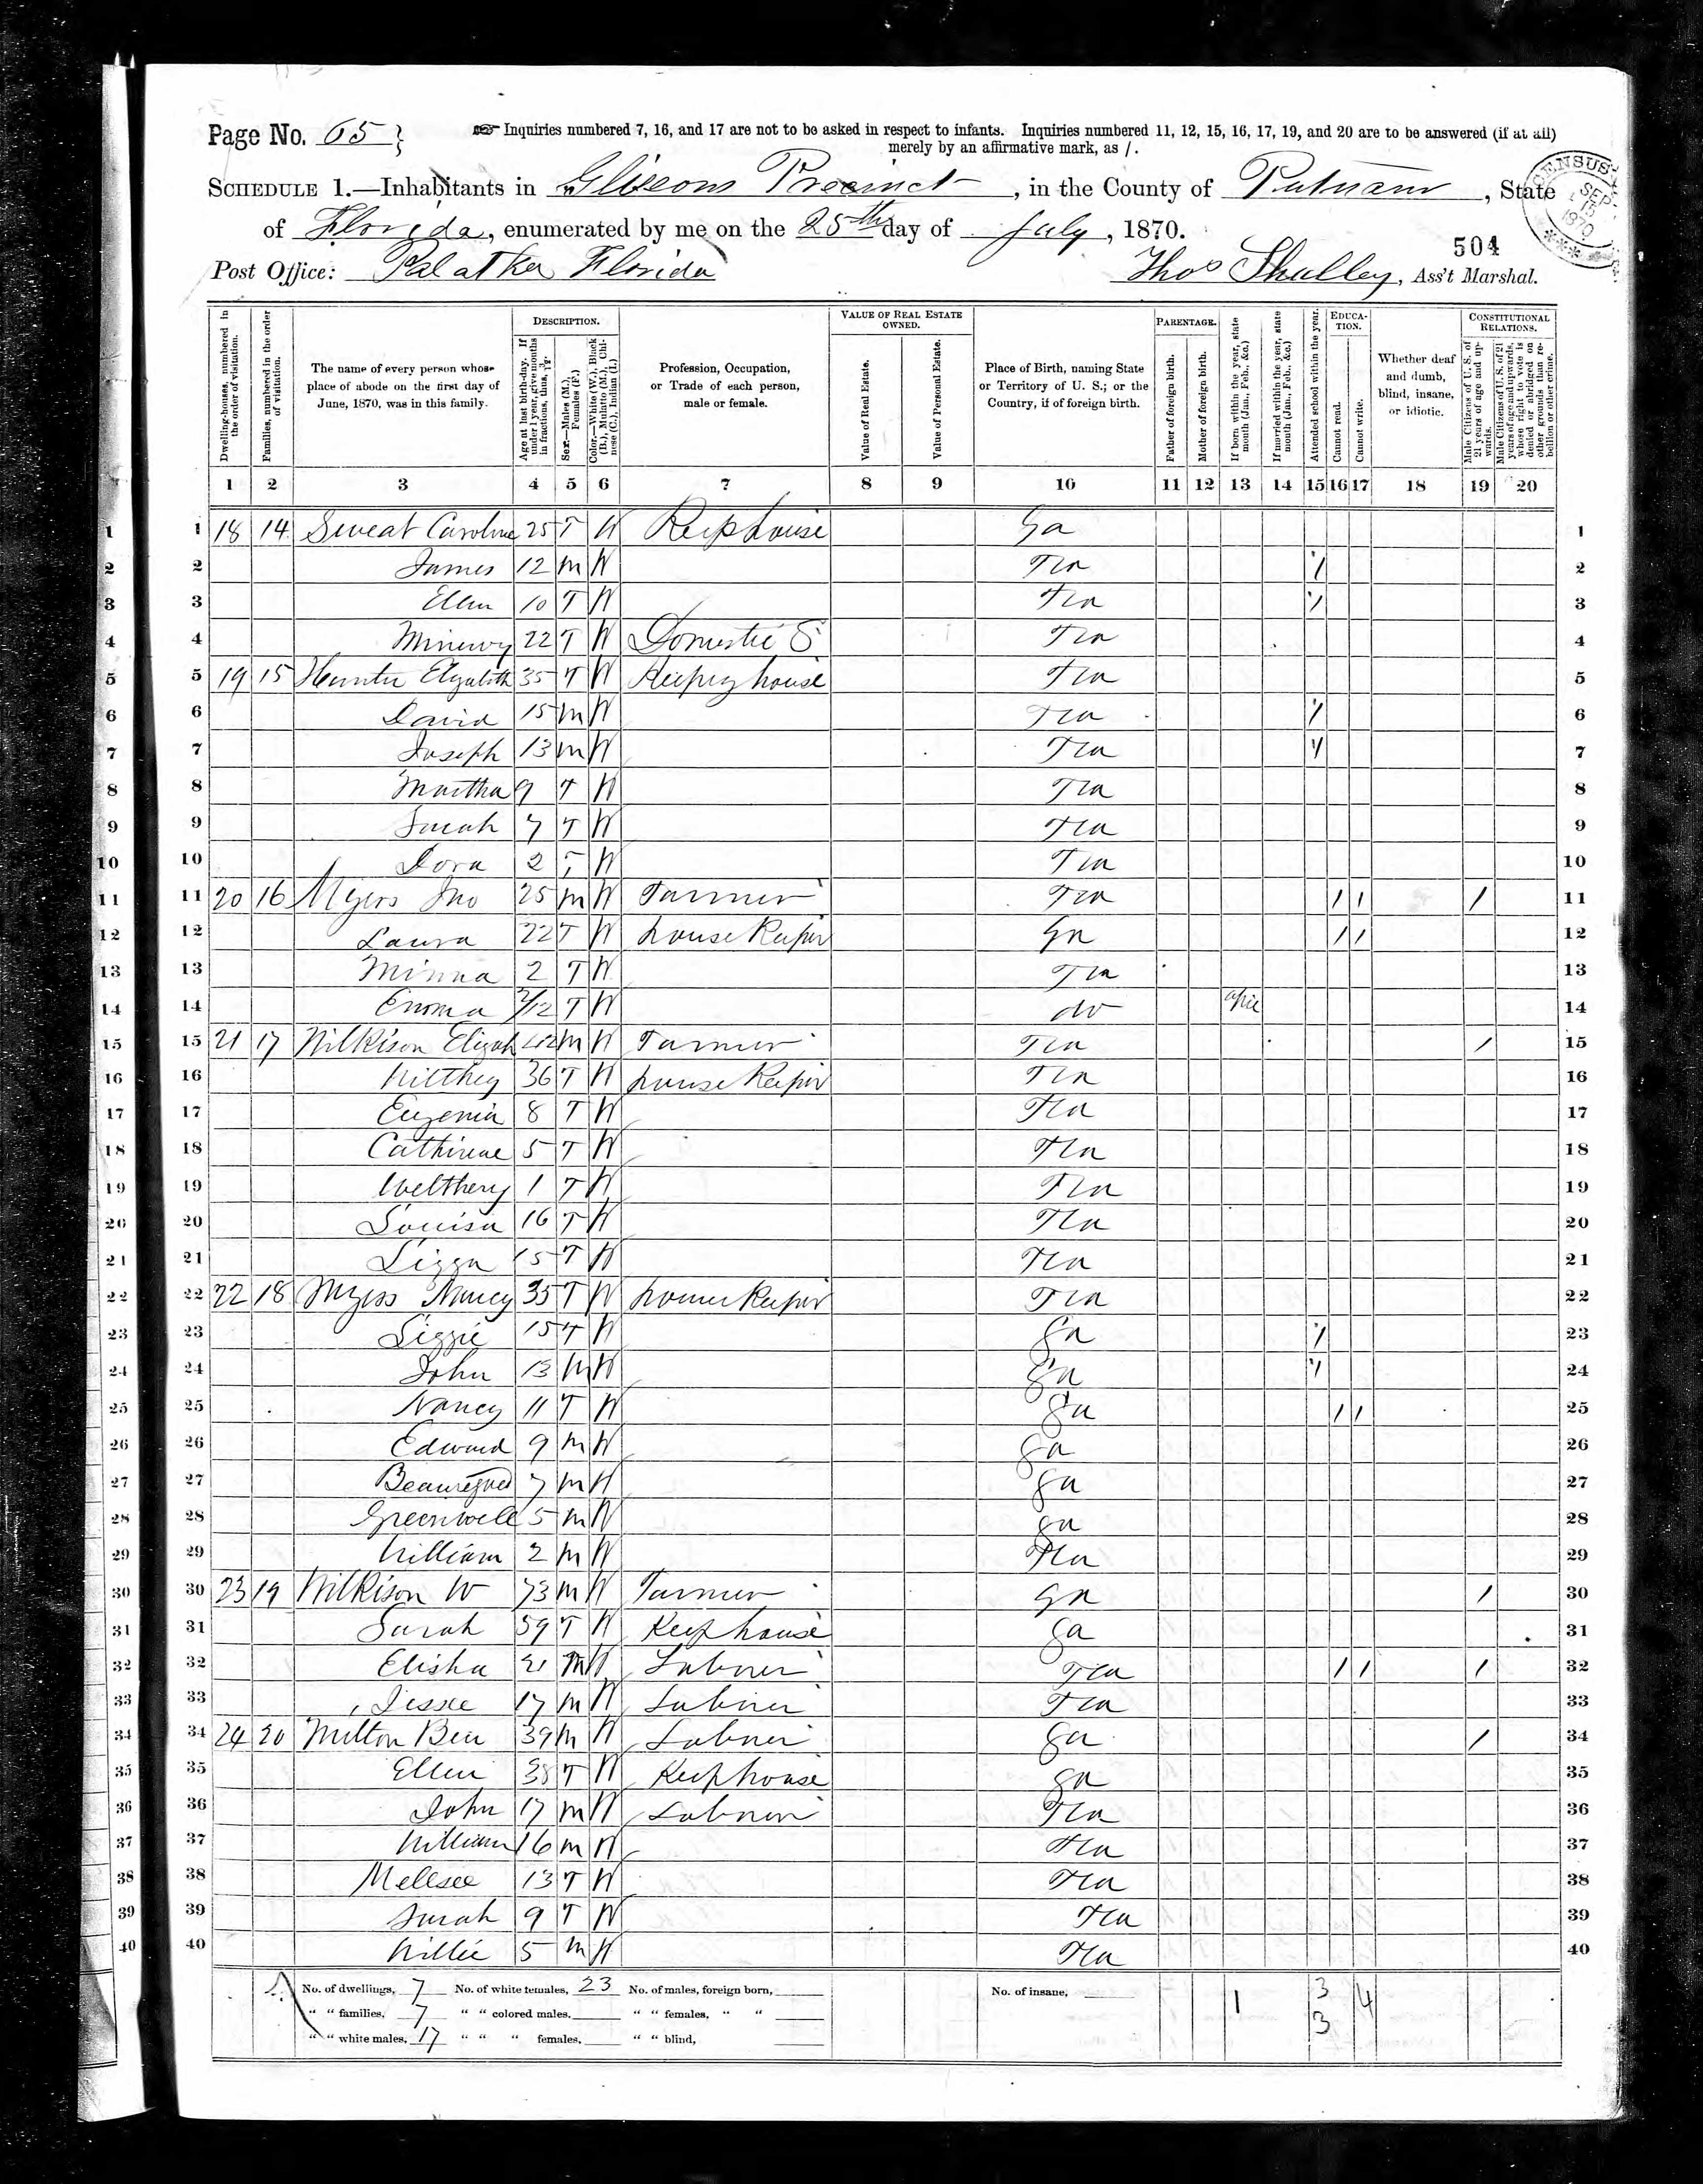 Page No. 65 } Inquiries numbered 7, 16, and 17 are not to be asked in respect to infants. Inquiries numbered 11, 12, 15, 16, 17, 19, and 20 are to be answered (if at all)
merely by an affirmative mark, as /.
SCHEDULE 1.—Inhabitants in Precinct, in the County of Putnam, State
of Florida, enumerated by me on the 25th day of July, 1870.
CENSUS SEP 13 1870
504
Post Office: Palatka Florida Thos Shalley, Ass't Marshal.
Dwelling-houses, numbered in the order of visitation.
Families, numbered in the order of visitation.
The name of every person whose place of abode on the first day of June, 1870, was in this family.
DESCRIPTION.
Age at last birth-day. If under 1 year, give months in fractions, thus, 3/12.
Sex.—Males (M.), Females (F.)
Color.—White (W.), Black (B.), Mulatto (M.), Chinese (C.), Indian (I.)
Profession, Occupation, or Trade of each person, male or female.
VALUE OF REAL ESTATE OWNED.
Value of Real Estate.
Value of Personal Estate.
Place of Birth, naming State or Territory of U. S.; or the Country, if of foreign birth.
PARENTAGE.
Father of foreign birth.
Mother of foreign birth.
If born within the year, state month (Jan., Feb., &c.)
If married within the year, state month (Jan., Feb., &c.)
Attended school within the year.
EDUCATION.
Cannot read.
Cannot write.
Whether deaf and dumb, blind, insane, or idiotic.
CONSTITUTIONAL RELATIONS.
Male Citizens of U. S. of 21 years of age and upwards.
Male Citizens of U. S. of 21 years of age and upwards, whose right to vote is denied or abridged on other grounds than rebellion or other crime.
1 2 3 4 5 6 7 8 9 10 11 12 13 14 15 16 17 18 19 20
1 1 18 14 Sweat Caroline 25 F W Keep house Ga 1
2 2 James 12 M W Fla / 2
3 3 Ellen 10 F W Fla / 3
4 4 Minervy 22 F W Domestic S Fla 4
5 5 19 15 Hunter Elizabith 35 F W Keeping house Fla 5
6 6 David 15 M W Fla / 6
7 7 Joseph 13 M W Fla / 7
8 8 Martha 9 F W Fla 8
9 9 Sarah 7 F W Fla 9
10 10 Dora 2 F W Fla 10
11 11 20 16 Myers Jno 25 M W Farmer Fla / / / 11
12 12 Laura 22 F W house Keeper Ga / / 12
13 13 Minna 2 F W Fla 13
14 14 Emma 2/12 F W do 14
15 15 21 17 Wilkison Elizah 42 M W Farmer Fla / 15
16 16 36 F W house Keeper Fla 16
17 17 Eugenia 8 F W Fla 17
18 18 Cathirine 5 F W Fla 18
19 19 Welthery 1 F W Fla 19
20 20 Louisa 16 F W Fla 20
21 21 Lizza 15 F W Fla 21
22 22 22 18 Myers Nancy 35 F W house Keeper Fla 22
23 23 Lizzie 15 F W Ga / 23
24 24 John 13 M W Ga / 24
25 25 Nancy 11 F W Ga / / 25
26 26 Edward 9 M W Ga 26
27 27 Beauregard 7 M W Ga 27
28 28 Greenwell 5 M W Ga 28
29 29 William 2 M W Fla 29
30 30 23 19 Wilkison W 73 M W Farmer Ga / 30
31 31 Sarah 59 F W Keep house Ga 31
32 32 Elisha 21 M W Laborer Fla / / / 32
33 33 Jessee 17 M W Laborer Fla 33
34 34 24 20 Milton Ben 39 M W Laborer Ga / 34
35 35 Ellen 38 F W Keep house Ga 35
36 36 John 17 M W Laborer Fla 36
37 37 William 16 M W Fla 37
38 38 Mellsee 13 F W Fla 38
39 39 Sarah 9 F W Fla 39
40 40 Willie 5 M W Fla 40
No. of dwellings, 7 No. of white females, 23 No. of males, foreign born, No. of insane, 1 3 4
" " families, 7 " " colored males, " " females, " " 3
" " white males, 17 " " " females, " " blind,